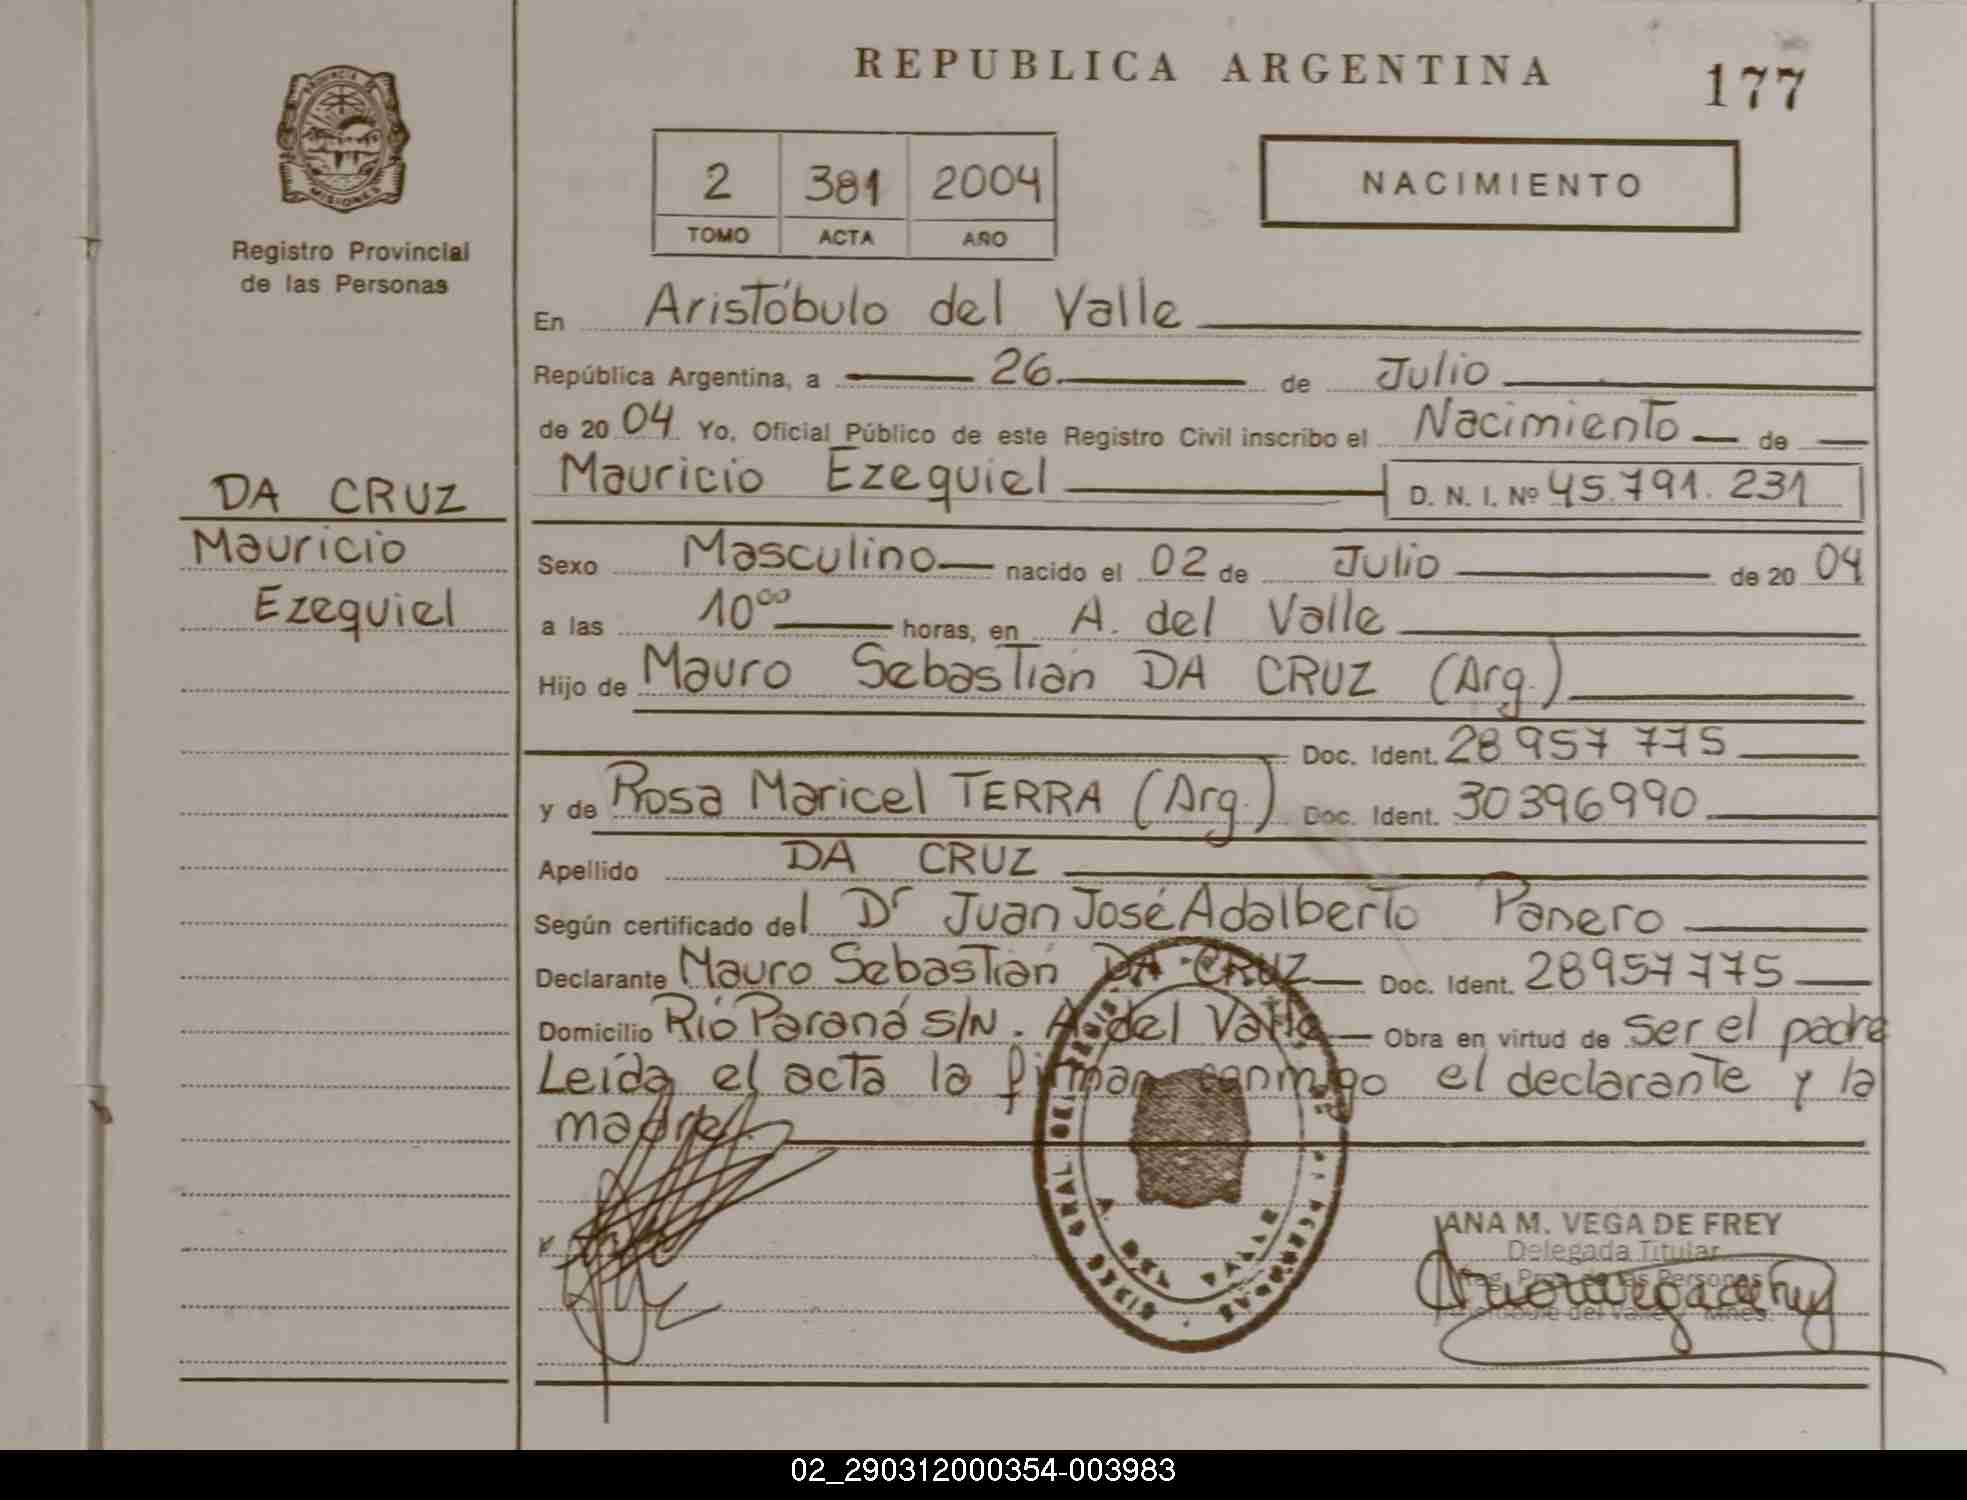 REPUBLICA ARGENTINA
177
PROVINCIA DE
MISIONES
Registro Provincial
de las Personas
2 381 2004
TOMO ACTA AÑO
NACIMIENTO
En Aristóbulo del Valle
República Argentina, a 26 de Julio
de 2004 Yo, Oficial Público de este Registro Civil inscribo el Nacimiento de
Mauricio Ezequiel D. N. I. Nº 45.791.231
DA CRUZ
Mauricio
Ezequiel
Sexo Masculino nacido el 02 de Julio de 2004
a las 10⁰⁰ horas, en A. del Valle
Hijo de Mauro Sebastián DA CRUZ (Arg.)
Doc. Ident. 28957775
y de Rosa Maricel TERRA (Arg.) Doc. Ident. 30396990
Apellido DA CRUZ
Según certificado del Dr Juan José Adalberto Panero
Declarante Mauro Sebastián DA CRUZ Doc. Ident. 28957775
Domicilio Río Paraná S/N. A. del Valle Obra en virtud de ser el padre
Leída el acta la firman conmigo el declarante y la
madre.
A. DEL VALLE
ANA M. VEGA DE FREY
Delegada Titular
Reg. Prov. de las Personas
del Valle Mnes.
02_290312000354-003983